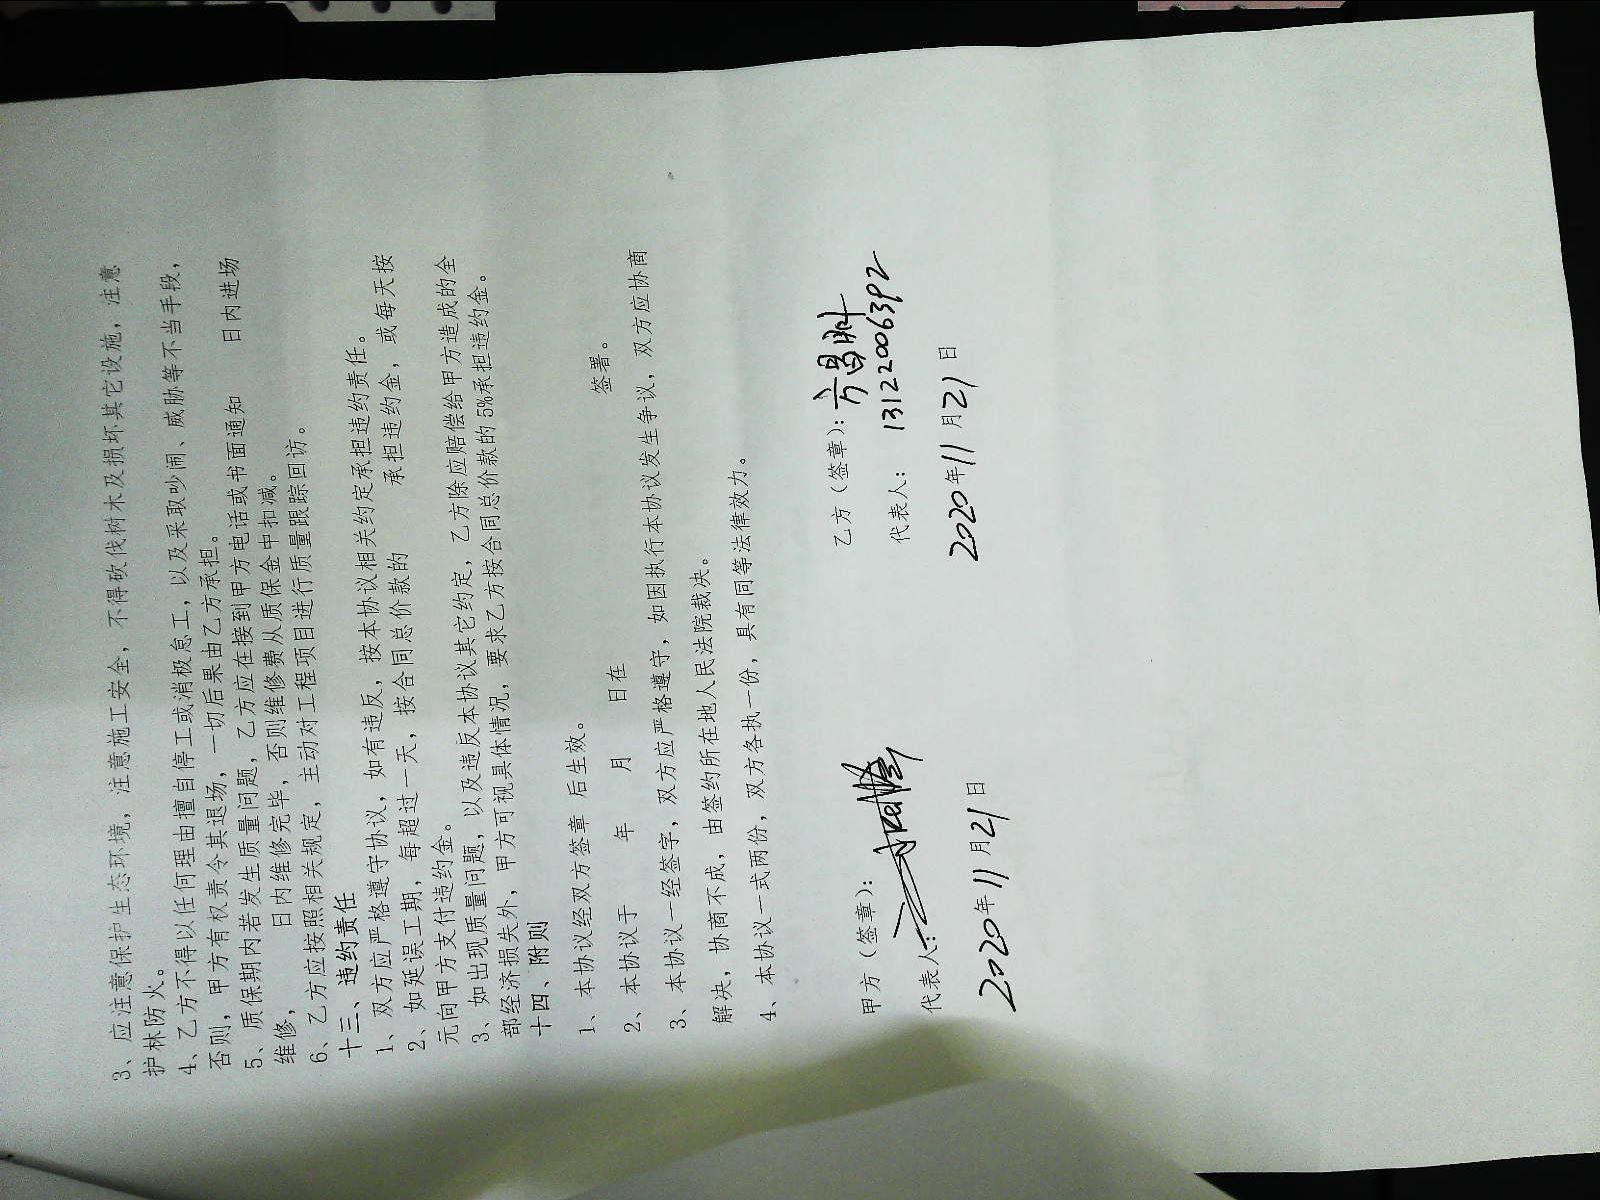 3、应注意保护生态环境，注意施工安全，不得砍伐树木及损坏其它设施，注意
护林防火。
4、乙方不得以任何理由擅自停工或消极怠工，以及采取吵闹、威胁等不当手段，
否则，甲方有权责令其退场，一切后果由乙方承担。
5、质保期内若发生质量问题，乙方应在接到甲方电话或书面通知 日内进场
维修， 日内维修完毕，否则维修费从质保金中扣减。
6、乙方应按照相关规定，主动对工程项目进行质量跟踪回访。
十三、违约责任
1、双方应严格遵守协议，如有违反，按本协议相关约定承担违约责任。
2、如延误工期，每超过一天，按合同总价款的 承担违约金，或每天按
元向甲方支付违约金。
3、如出现质量问题，以及违反本协议其它约定，乙方除应赔偿给甲方造成的全
部经济损失外，甲方可视具体情况，要求乙方按合同总价款的5%承担违约金。
十四、附则
1、本协议经双方签章 后生效。
2、本协议于 年 月 日在 签署。
3、本协议一经签字，双方应严格遵守，如因执行本协议发生争议，双方应协商
解决，协商不成，由签约所在地人民法院裁决。
4、本协议一式两份，双方各执一份，具有同等法律效力。
甲方（签章）： 乙方（签章）：方昌胜
代表人： 代表人： 13122006392
2020年11月21日 2020年11月21日